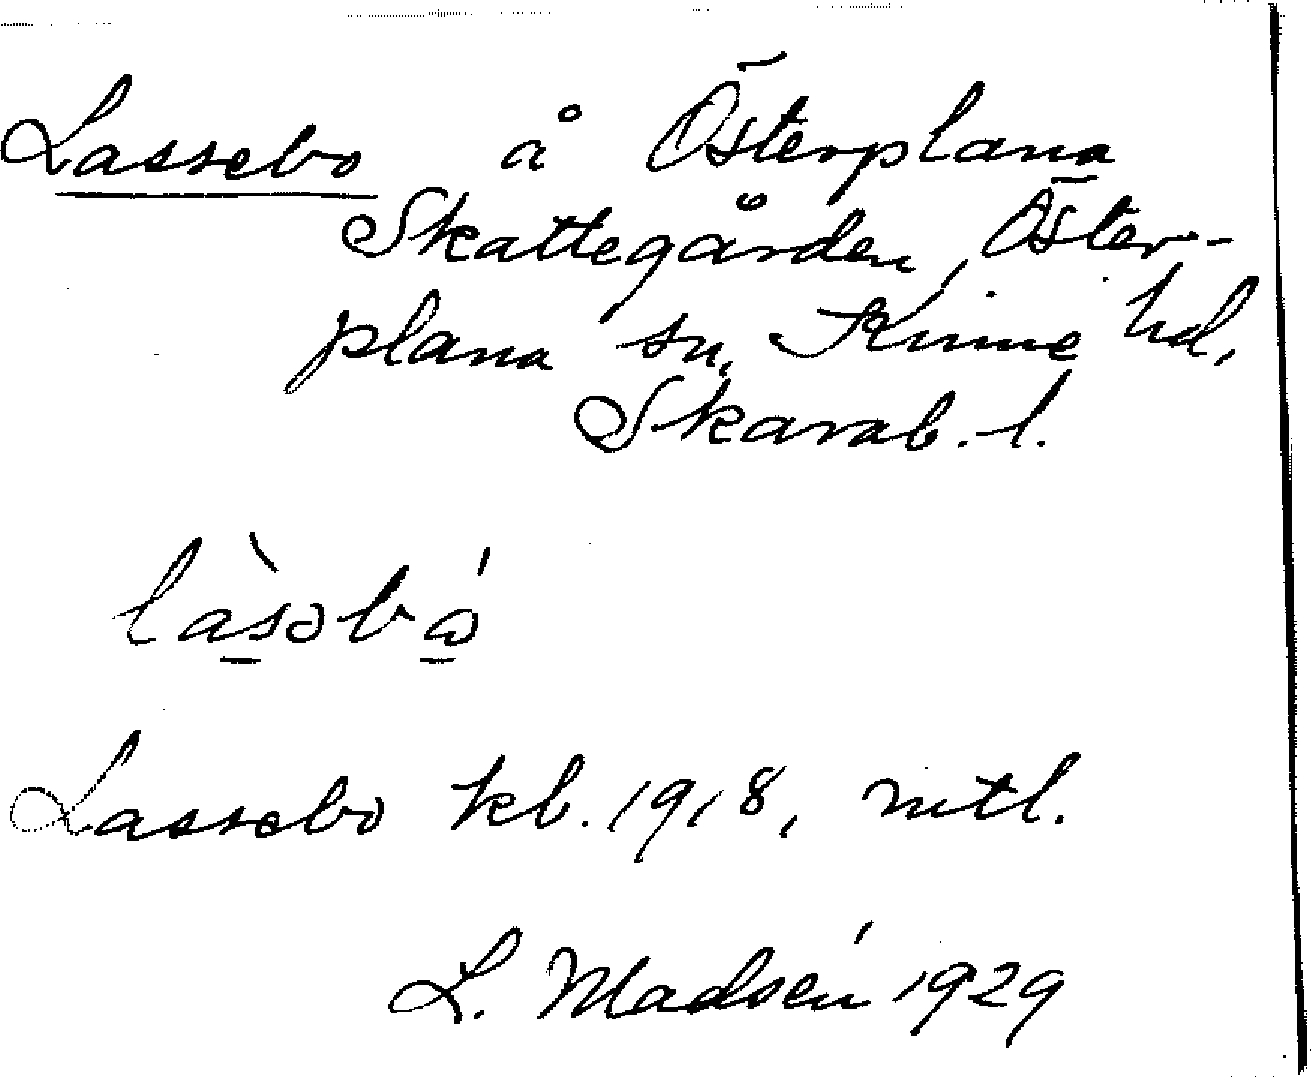 Lassebo å Österplana
Skattegården, Öster-
plana sn, Kinne hd,
Skarab. l.
làsəbó
Lassebo kb. 1918, mtl.
L. Madsén 1929